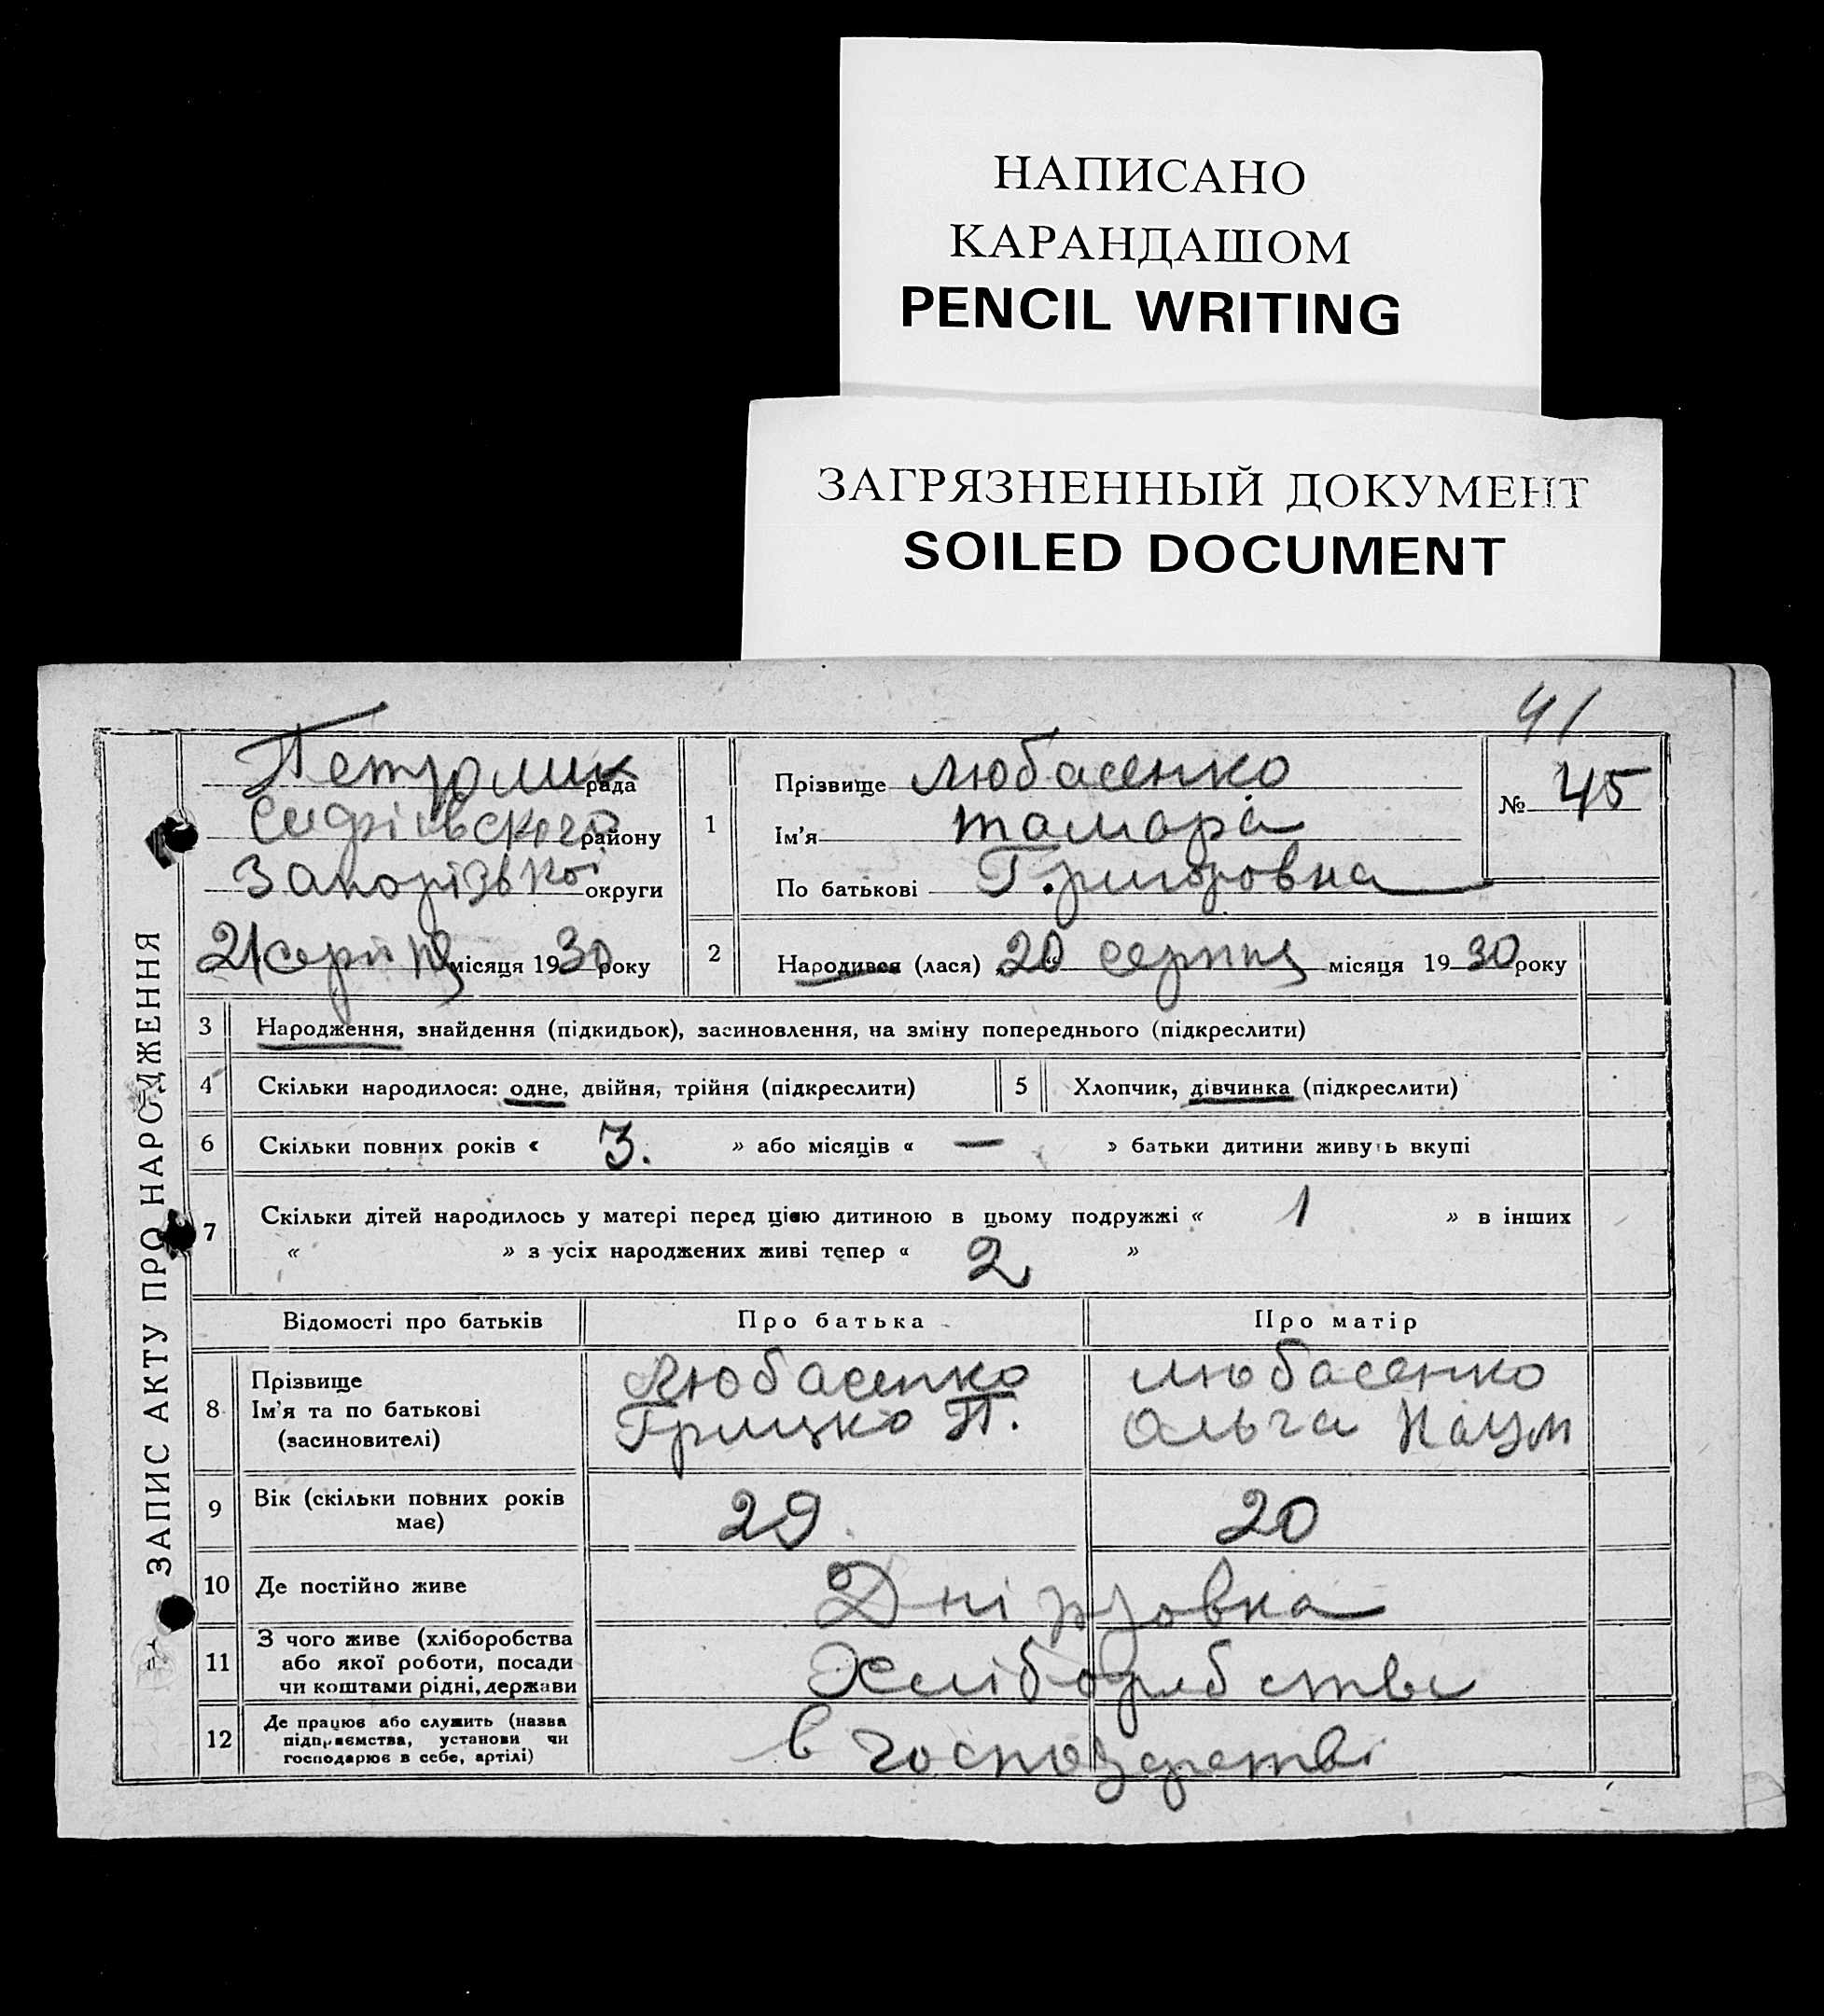 НАПИСАНО
КАРАНДАШОМ
PENCIL WRITING
ЗАГРЯЗНЕННЫЙ ДОКУМЕНТ
SOILED DOCUMENT
41
ЗАПИС АКТУ ПРО НАРОДЖЕННЯ
рада
району
Запорізької округи
21 серпня місяця 1930 року
1
Прізвище Любасенко
Ім'я Тамара
По батькові Григоровна
№ 45
2
Народився (лася) „20“ серпня місяця 1930 року
3 Народження, знайдення (підкидьок), засиновлення, на зміну попереднього (підкреслити)
4 Скільки народилося: одне, двійня, трійня (підкреслити) 5 Хлопчик, дівчинка (підкреслити)
6 Скільки повних років « 3. » або місяців « — » батьки дитини живуть вкупі
7 Скільки дітей народилось у матері перед цією дитиною в цьому подружжі « 1 » в інших
« » з усіх народжених живі тепер « 2 »
Відомості про батьків Про батька Про матір
8 Прізвище Любасенко Любасенко
Ім'я та по батькові Грицко П. Ольга Наум
(засиновителі)
9 Вік (скільки повних років 29 20
має)
10 Де постійно живе Дніпровка
11 З чого живе (хліборобства
або якої роботи, посади Хліборобство
чи коштами рідні, держави
12 Де працює або служить (назва
підприємства, установи чи в господарстві
господарює в себе, артілі)